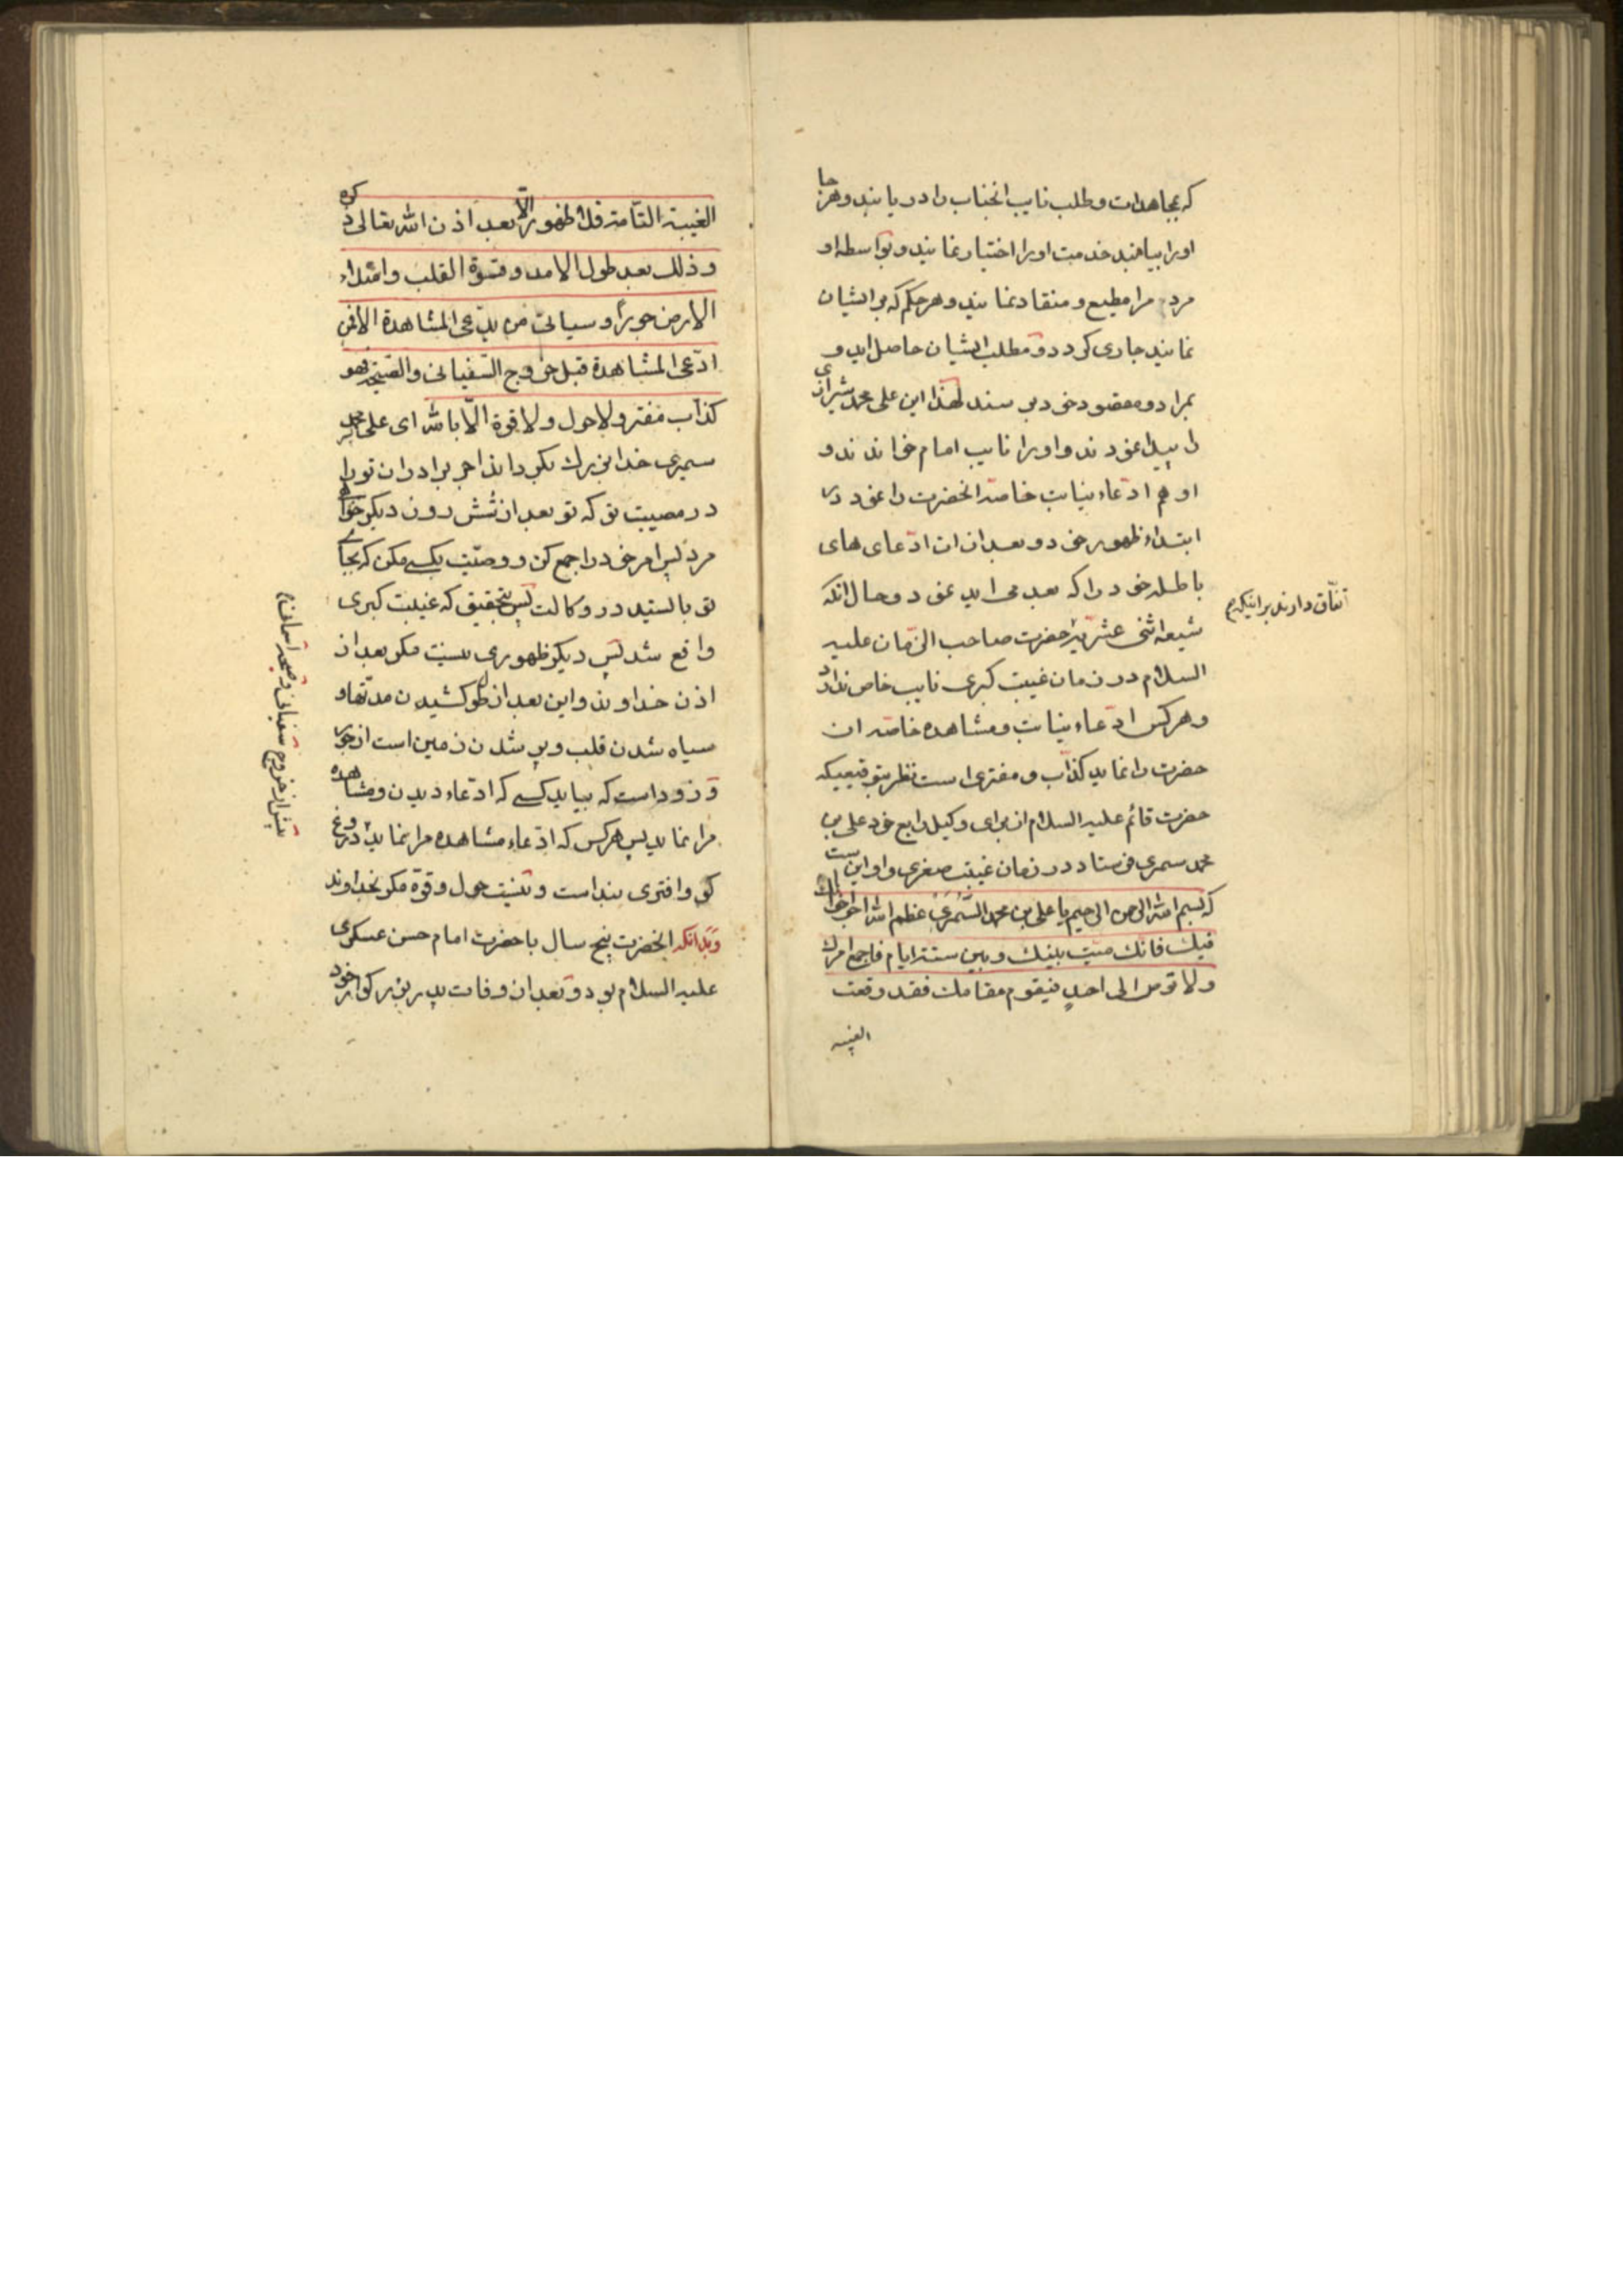 که بمجاهدات و طلب نایب انجناب را دریابند و هرجا
او را بیابند خدمت او را اختیار نمایند و بواسطه او
مردم را مطیع و منقاد نمایند و هر حکم که بر ایشان
نمایند جاری کردد و مطلب ایشان حاصل اید و
بمراد و مقصود خود برسند لهذا این علی محمد شیرازی
را پیدا نمودند و او را نایب امام خواندند و
او هم ادّعاء نیابت خاصه انحضرت را نمود در
ابتداء ظهور خود و بعد از ان ادّعای های
باطله خود را که بعد می اید نمود و حال انکه
اتفاق دارند بر اینکه
شیعه اثنی عشریّه حضرت صاحب الزمان علیه
السلام در زمان غیبت کبری نایب خاص ندارد
و هر کس ادّعاء نیابت و مشاهده خاصه ان
حضرت را نماید کذّاب و مفتری است نظر بتوقیعیکه
حضرت قائم علیه السلام از برای وکیل رابع خود علی بن
محمد سمری فرستاد در زمان غیبت صغری و او این است
که بسم الله الرحمن الرحیم یا علی بن محمد السَّمُرَی عظم الله اجر اخوانك
فیك فانّك میّت بینك و بین ستة ایام فاجمع امرك
و لا توص الی احدٍ فیقوم مقامك فقد وقعت
الغیبه
الغیبة التّامة فلا ظهور الّا بعد اذن الله تعالی ذکره
و ذلك بعد طول الامد و قسوة القلب و امتلاء
الارض جوراً و سیاتی من یدّعی المشاهدة الا فمن
ادّعی المشاهدة قبل خروج السّفیانی و الصّیحة فهو
کذّاب مفتر و لا حول و لا قوة الّا بالله ای علی محمد
سمیری خدا بزرك بکرداند اجر برادران تو را
در مصیبت تو که تو بعد از شش روز دیکر خواهی
مرد پس امر خود را جمع کن و وصیّت بکسے مکن که بجای
تو بایستد در وکالت پس بتحقیق که غیبت کبری
واقع شد پس دیکر ظهوری نیست مکر بعد از
اذن خداوند و این بعد از طول کشیدن مدّتها و
سیاه شدن قلب و پر شدن زمین است از جور
و زود است که بیاید کسے که ادّعاء دیدن و مشاهده
مرا نماید پس هر کس که ادّعاء مشاهده مرا نماید دروغ
پیش از خروج سفیانی و صیحه آسمانی
کو و افتری بند است و نیست حول و قوّة مکر بخداوند
و بدانکه انحضرت پنج سال با حضرت امام حسن عسکری
علیه السلام بود و بعد از وفات پدر بزرکوار خود